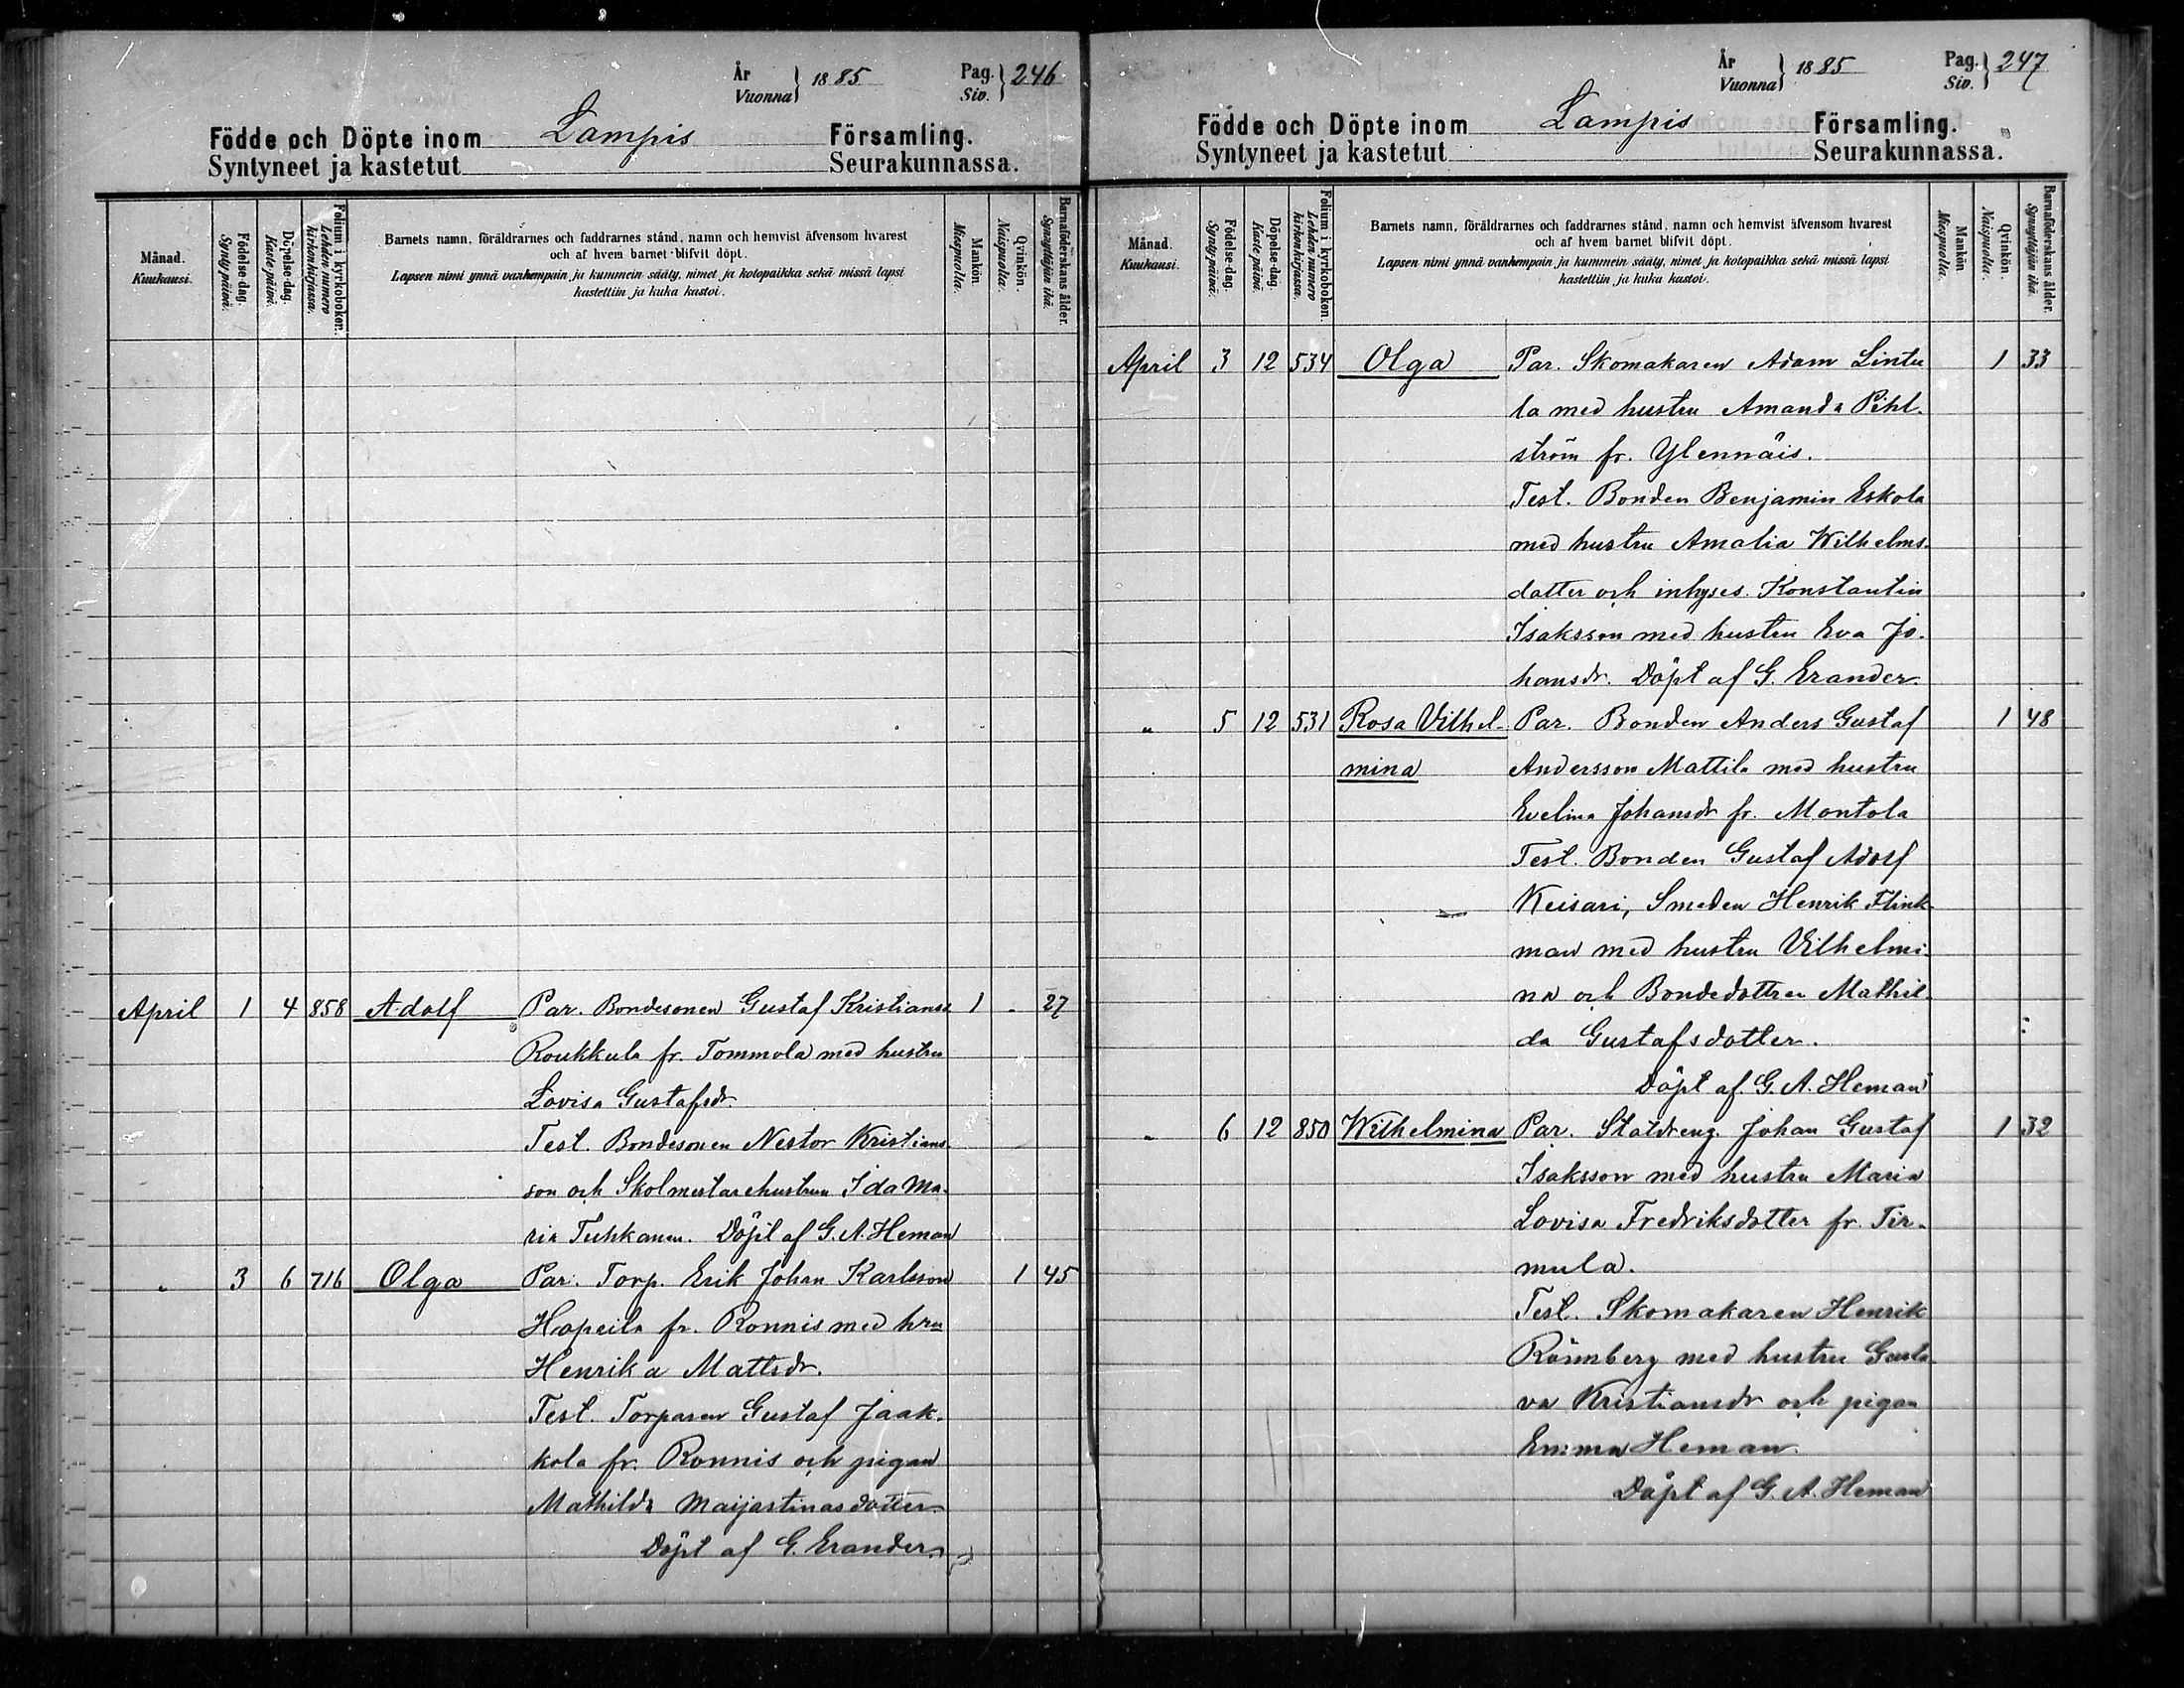 År
Vuonna } 1885 Pag.
Siv. } 246
Födde och Döpte inom Lampis Församling.
Syntyneet ja kastetut Seurakunnassa.
Månad.
Kuukausi.
Födelse-dag.
Synty-päivä.
Döpelse-dag.
Kaste-päivä.
Folium i kyrkoboken.
Lehden numero
kirkonkirjassa.
Barnets namn, föräldrarnes och faddrarnes stånd, namn och hemvist äfvensom hvarest
och af hvem barnet blifvit döpt.
Lapsen nimi ynnä vanhempain ja kummein sääty, nimet ja kotopaikka sekä missä lapsi
kastettiin ja kuka kastoi.
Mankön.
Miespuolia.
Qvinkön.
Naispuolia.
Barnaföderskans ålder.
Synnyttäjän ikä.
April 1 4 858 Adolf Par. Bondesonen Gustaf Kristianss. 1 - 27
Roukkula fr. Tommola med hustru
Lovisa Gustafsdr.
Test. Bondesonen Nestor Kristians-
son och Skolmestarehustrun Ida Ma-
ria Tuhkanen. Döpt af G. A. Heman
" 3 6 716 Olga Par. Torp. Erik Johan Karlsson 1 45
Hapeila fr. Ronnis med hru
Henrika Mattsdr.
Test. Torparen Gustaf Jaak-
kola fr. Ronnis och pigan
Mathilda Maijastinasdotter
Döpt af G. Erander
År
Vuonna } 1885 Pag.
Siv. } 247
Födde och Döpte inom Lampis Församling.
Syntyneet ja kastetut Seurakunnassa.
Månad.
Kuukausi.
Födelse-dag.
Synty-päivä.
Döpelse-dag.
Kaste-päivä.
Folium i kyrkoboken.
Lehden numero
kirkonkirjassa.
Barnets namn, föräldrarnes och faddrarnes stånd, namn och hemvist äfvensom hvarest
och af hvem barnet blifvit döpt.
Lapsen nimi ynnä vanhempain ja kummein sääty, nimet ja kotopaikka sekä missä lapsi
kastettiin ja kuka kastoi.
Mankön
Miespuolia.
Qvinkön.
Naispuolia.
Barnaföderskans ålder.
Synnyttäjän ikä.
April 3 12 534 Olga Par. Skomakaren Adam Lintu 1 33
la med hustru Amanda Pihl-
ström fr. Ylennäis.
Test. Bonden Benjamin Eskola
med hustru Amalia Wilhelms-
dotter och inhyses Konstantin
Isaksson med hustru Eva Jo-
hansdr. Döpt af G. Erander.
" 5 12 531 Rosa Vilhel- Par. Bonden Anders Gustaf 1 48
mina Andersson Mattila med hustru
Evelina Johansdr fr. Montola
Test. Bonden Gustaf Adolf
Keisari, Smeden Henrik Flink-
man med hustru Vilhelmi-
na och Bondedottren Mathil-
da Gustafsdotter.
Döpt af G. A. Heman
" 6 12 850 Wilhelmina Par. Statdreng. Johan Gustaf 1 32
Isaksson med hustru Maria
Lovisa Fredriksdotter fr. Tir-
mula.
Test. Skomakaren Henrik
Rönnberg med hustru Gusta
va Kristiansdr och pigan
Emma Heman.
Döpt af G. A. Heman